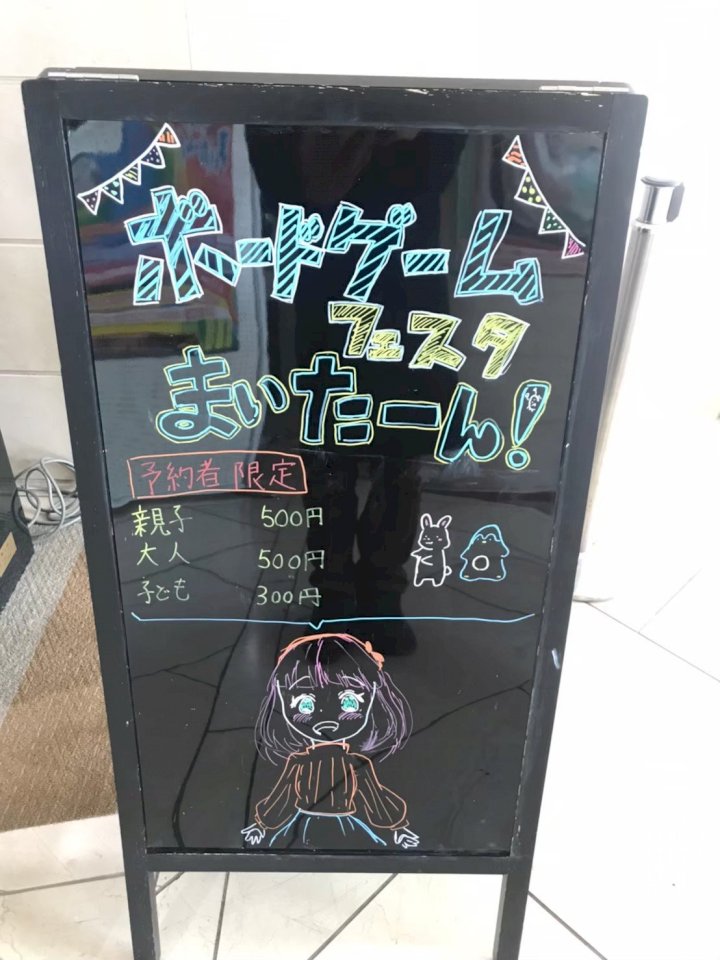 ボードゲーム
フェスタ
まいたーん!
予約者限定
親子 500円
大人 500円
子ども 300円